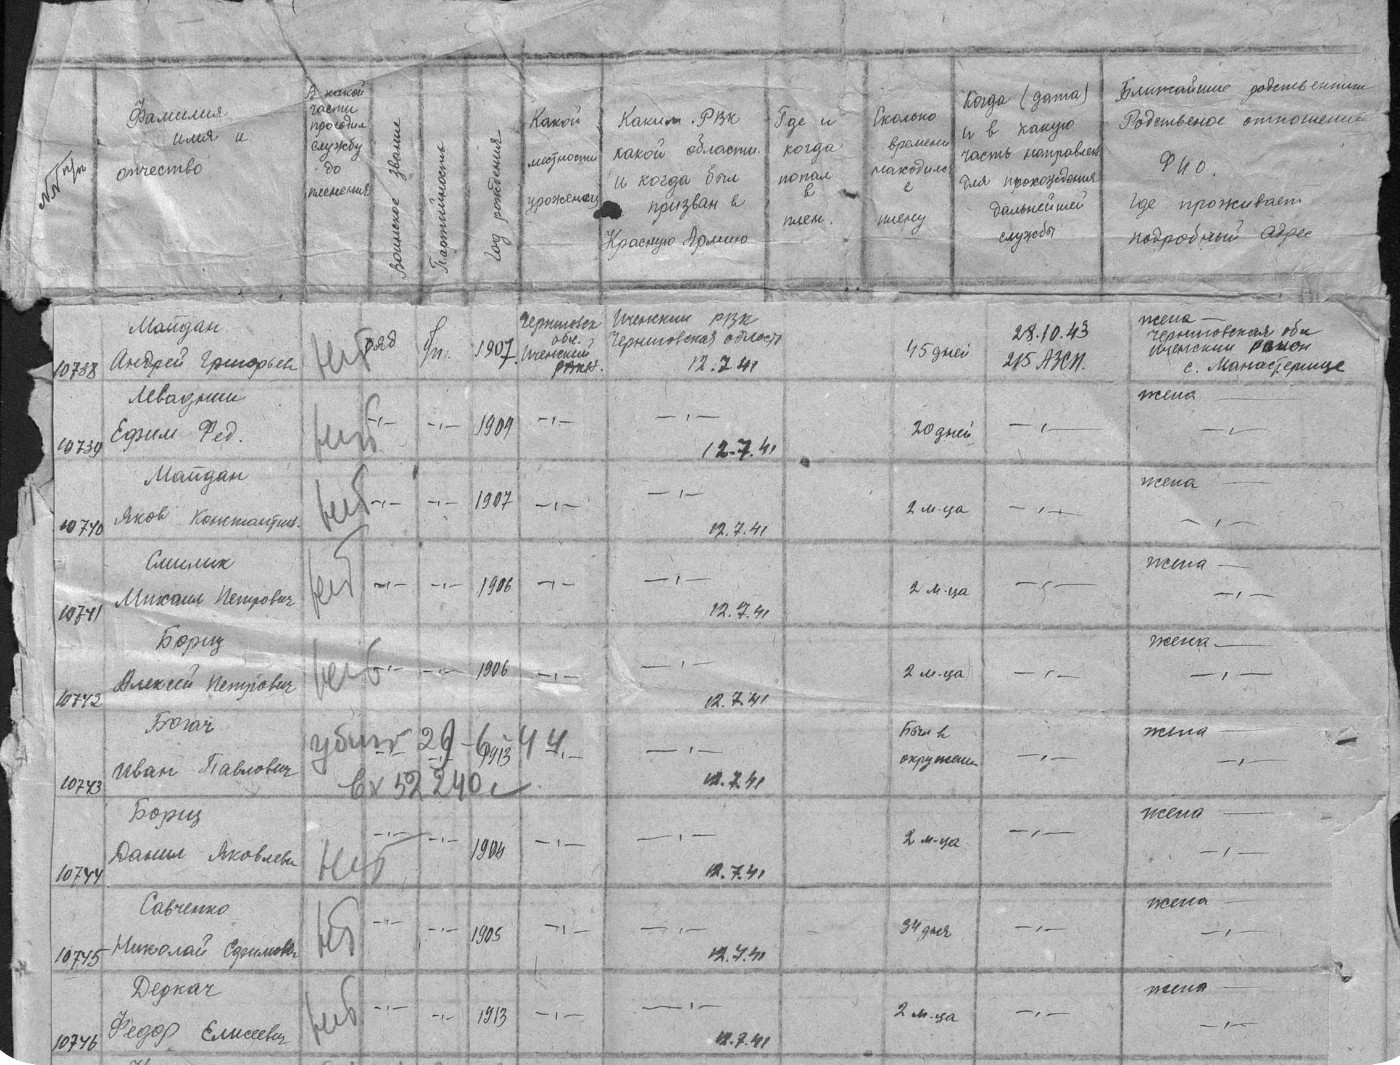 №№ п/п
Фамилия
имя и
отчество
В какой
части
проходил
службу
до
пленения
Воинское звание
Партийность
Год рождения
Какой
местности
уроженец
Каким РВК
какой области
и когда был
призван в
Красную Армию
Где и
когда
попал
в
плен.
Сколько
времени
находился
в
плену
Когда (дата)
и в какую
часть направлен
для прохождения
дальнейшей
службы
Ближайшие родственники
Родственое отношение
ФИО.
Где проживает
подробный адрес
10738
Майдан
Андрей Григорьев
ряд
б/п.
1907.
Черниговск
обл.
Ичненский
район.
Ичненский РВК
Черниговская область
12.7.41
45 дней
28.10.43
215 АЗСП.
жена —
Черниговская обл
Ичненский район
с. Манастерище
10739
Ефим Фед.
-„-
-„-
1909
-„-
-„-
12.7.41
20 дней
-„-
жена —
-„-
10740
Майдан
Яков Константин.
-„-
-„-
1907
-„-
-„-
12.7.41
2 м-ца
-„-
жена —
-„-
10741
Смилик
Михаил Петрович
-„-
-„-
1906
-„-
-„-
12.7.41
2 м-ца
-„-
жена —
-„-
10742
Борщ
Алексей Петрович
-„-
-„-
1906
-„-
-„-
12.7.41
2 м-ца
-„-
жена —
-„-
10743
Богач
Иван Павлович
убит 29-6-44
вх 52240с
1913
-„-
-„-
12.7.41
Был в
окружении
-„-
жена —
-„-
10744
Борщ
Данил Яковлеви
-„-
1904
-„-
-„-
12.7.41
2 м-ца
-„-
жена —
-„-
10745
Савченко
Николай Ефимови
-„-
-„-
1905
-„-
-„-
12.7.41
34 дня
-„-
жена —
-„-
10746
Деркач
Федор Елисеевич
-„-
-„-
1913
-„-
-„-
12.7.41
2 м-ца
-„-
жена —
-„-